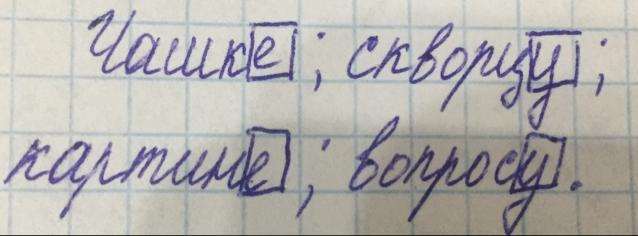 Чашке; скворцу;
картине; вопросу.